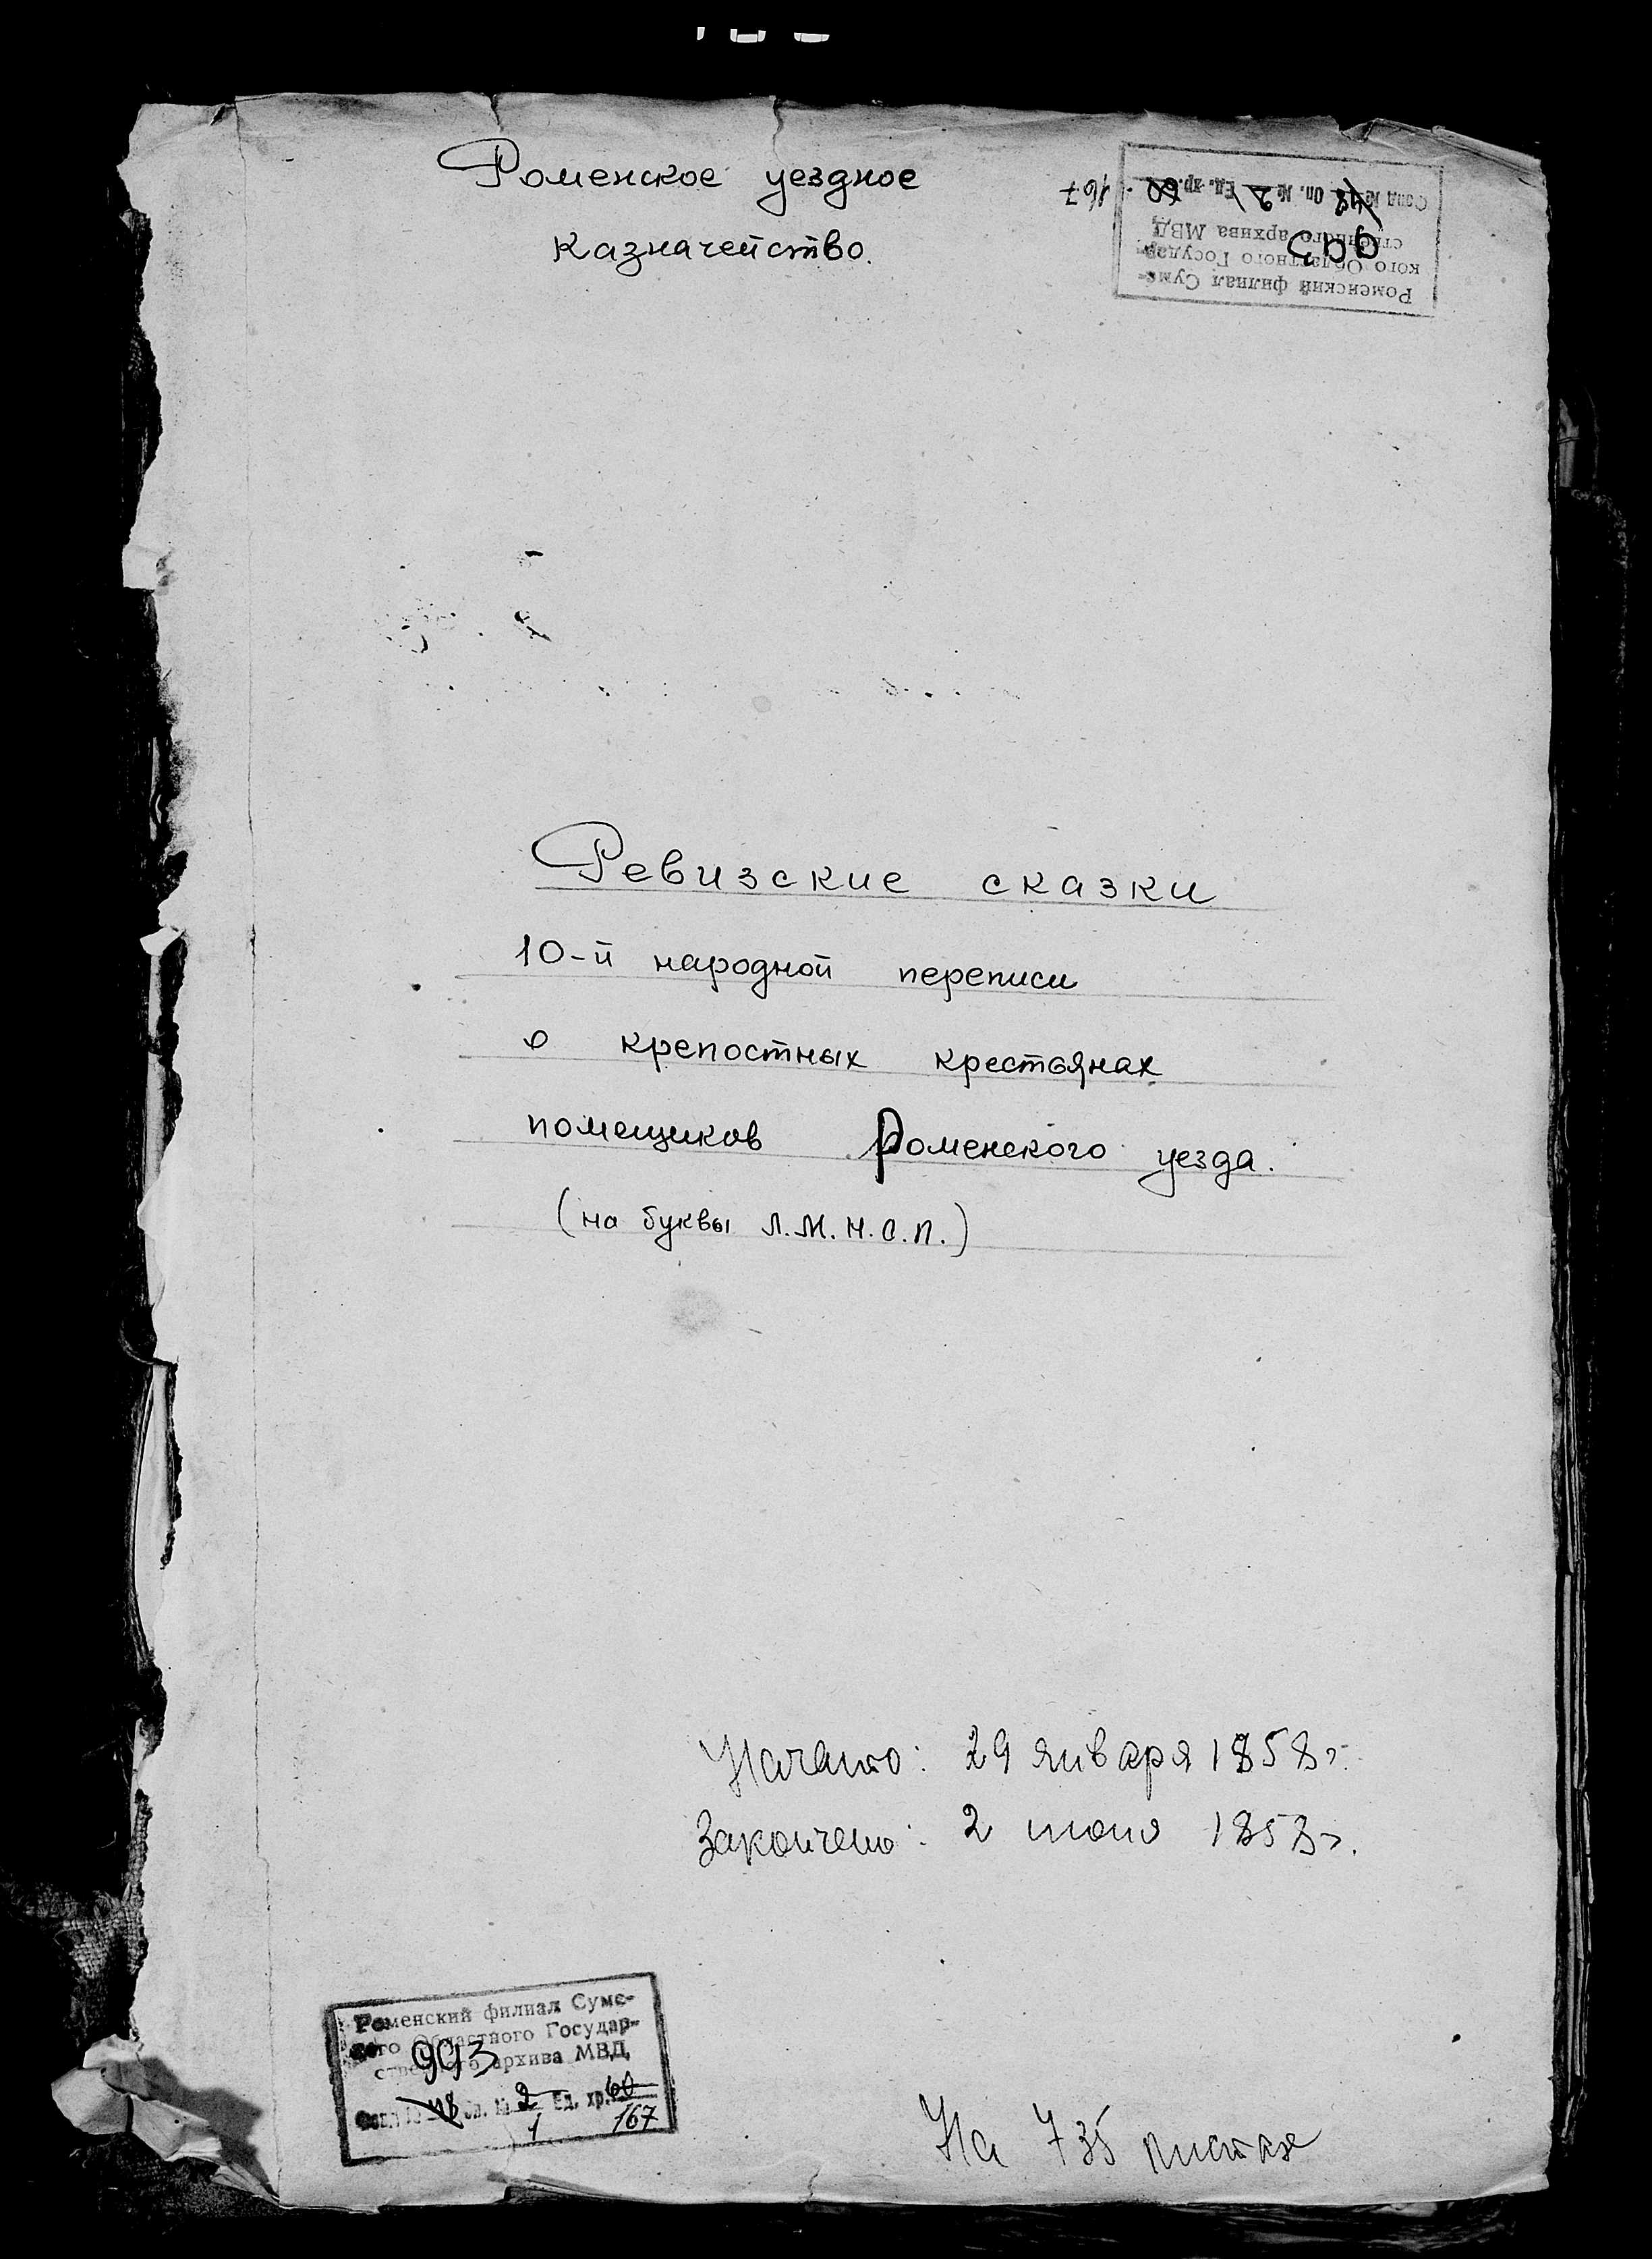 Роменское уездное
казначейство.
Роменский филиал Сумс-
кого Областного Государ-
ственного архива МВД
993
Фонд № 48 Оп. № 2 Ед. хр. 60
1 167
Ревизские сказки
10-й народной переписи
о крепостных крестьянах
помещиков Роменского уезда.
(на буквы Л.М.Н.О.П.)
Начато: 29 января 1858 г.
Закончено: 2 июня 1858 г.
Роменский филиал Сумс-
кого Областного Государ-
ственного архива МВД
993
Фонд № 48 Оп. № 2 Ед. хр. 60
1 167
На 735 листах